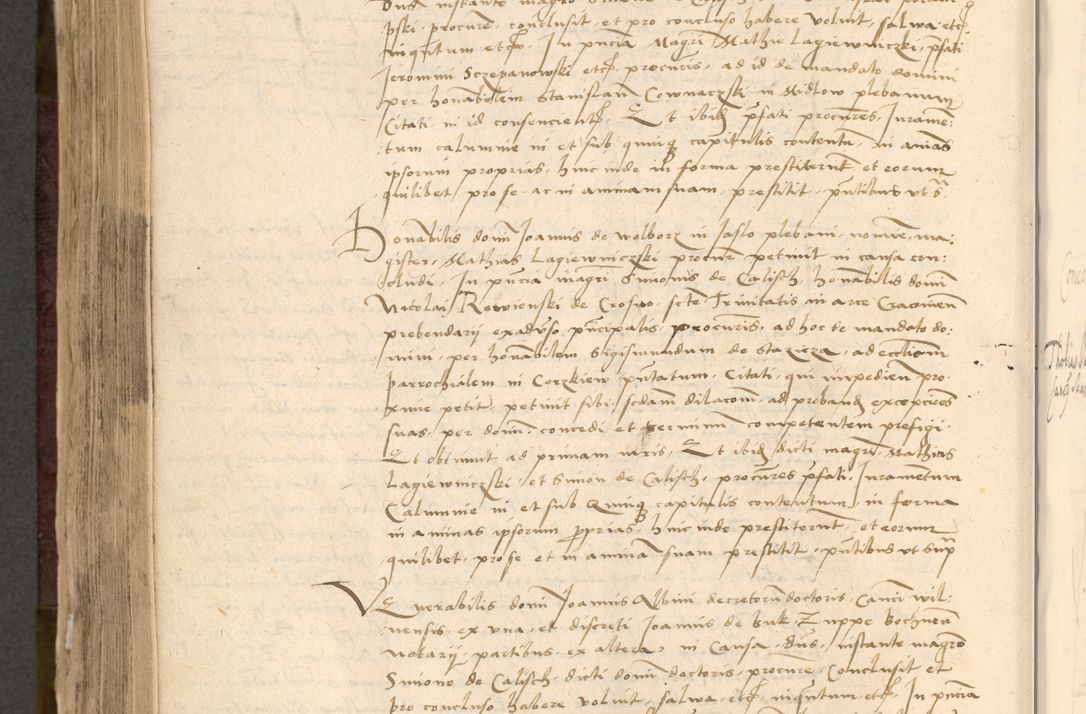 pski, procure, conclusit, et pro concluso habere voluit, salwa etc
inquitum etc. In pncia Magri Mathie Lagiewniczki, pfati
Jeronimi Sczepanowski etc procuris, ad id de mandato domini
per honabilem Stanislaum Cownaczki in Midlow plebanum
Citati, in id consencient. Et ibid pfati procures, Jurame:
tum calumnie in et sub quinq capitulis contentu, in aias
ipsorum proprias, hinc inde in forma prestiterut, et eorum
quilibet, pro se, ac in animam suam, prestitit, pntibus ut s.
Honabilis domi Joannis de wolborz in Jaslo plebani, nomine, ma:
gister, Mathias Lagiewniczski procur petiuit in causa con:
cludi, In pncia magri Simonis de Calisch, honabilis domi
Nicolai Rowienski de Crosno, scte Trinitatis in arce Cracovien
prebendarij ex aduso pncipalis, procuris, ad hoc de mandato do:
mini, per honabilem Sigismundum de Stazicza, ad eccliam
parrochialem in Corzkiew pntatum, Citati, qui impedien pro:
xime petit, petiuit sibi, scdam dilacom, ad proband excepcioes
suas, per dom, concedi et terminu competentem prefigi.
Et obtinuit ad primam iuris, Et ibid dicti magri Mathias
Lagiewniczski, et Simon de Calisch, procures pfati, Juramentum
Calumnie in et sub Quinq capitulis contentum, in forma
in animas ipsorum pprias, hinc inde prestiterut, et eorum
quilibet, pro se et in animam suam prestitit, pntibus ut sup
Venerabilis domi Joannis Albini decretoru doctoris, Canci wil:
nensis, ex una, et discreti Joannis de Buk Zuppe Bochnen
notarij, partibus, ex altera, in Causa, dns, instante magro
Simone de Calisch, dicti domi doctoris, procure, Conclusit et
pro concluso habere voluit, salwa, etc, inquitum etc, In pncia